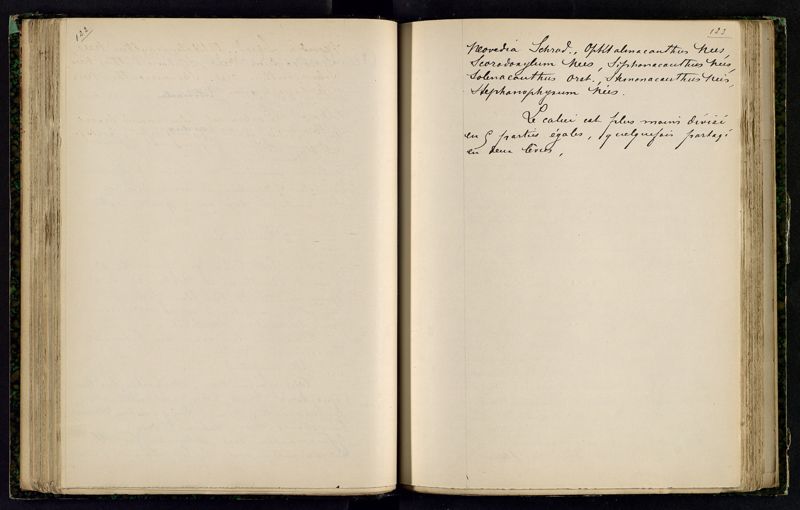 122
123
Neowedia Schrad., Ophtalmacanthus Nées,
Scorodoxylum Nées, Siphonacanthus Nées,
Solenacanthus Orst., Stenonacanthus Nées,
Stephanophysum Nées.
Le calice est plus moins divisé
en 5 parties égales, quelquefois partagé
en deux lèvres,